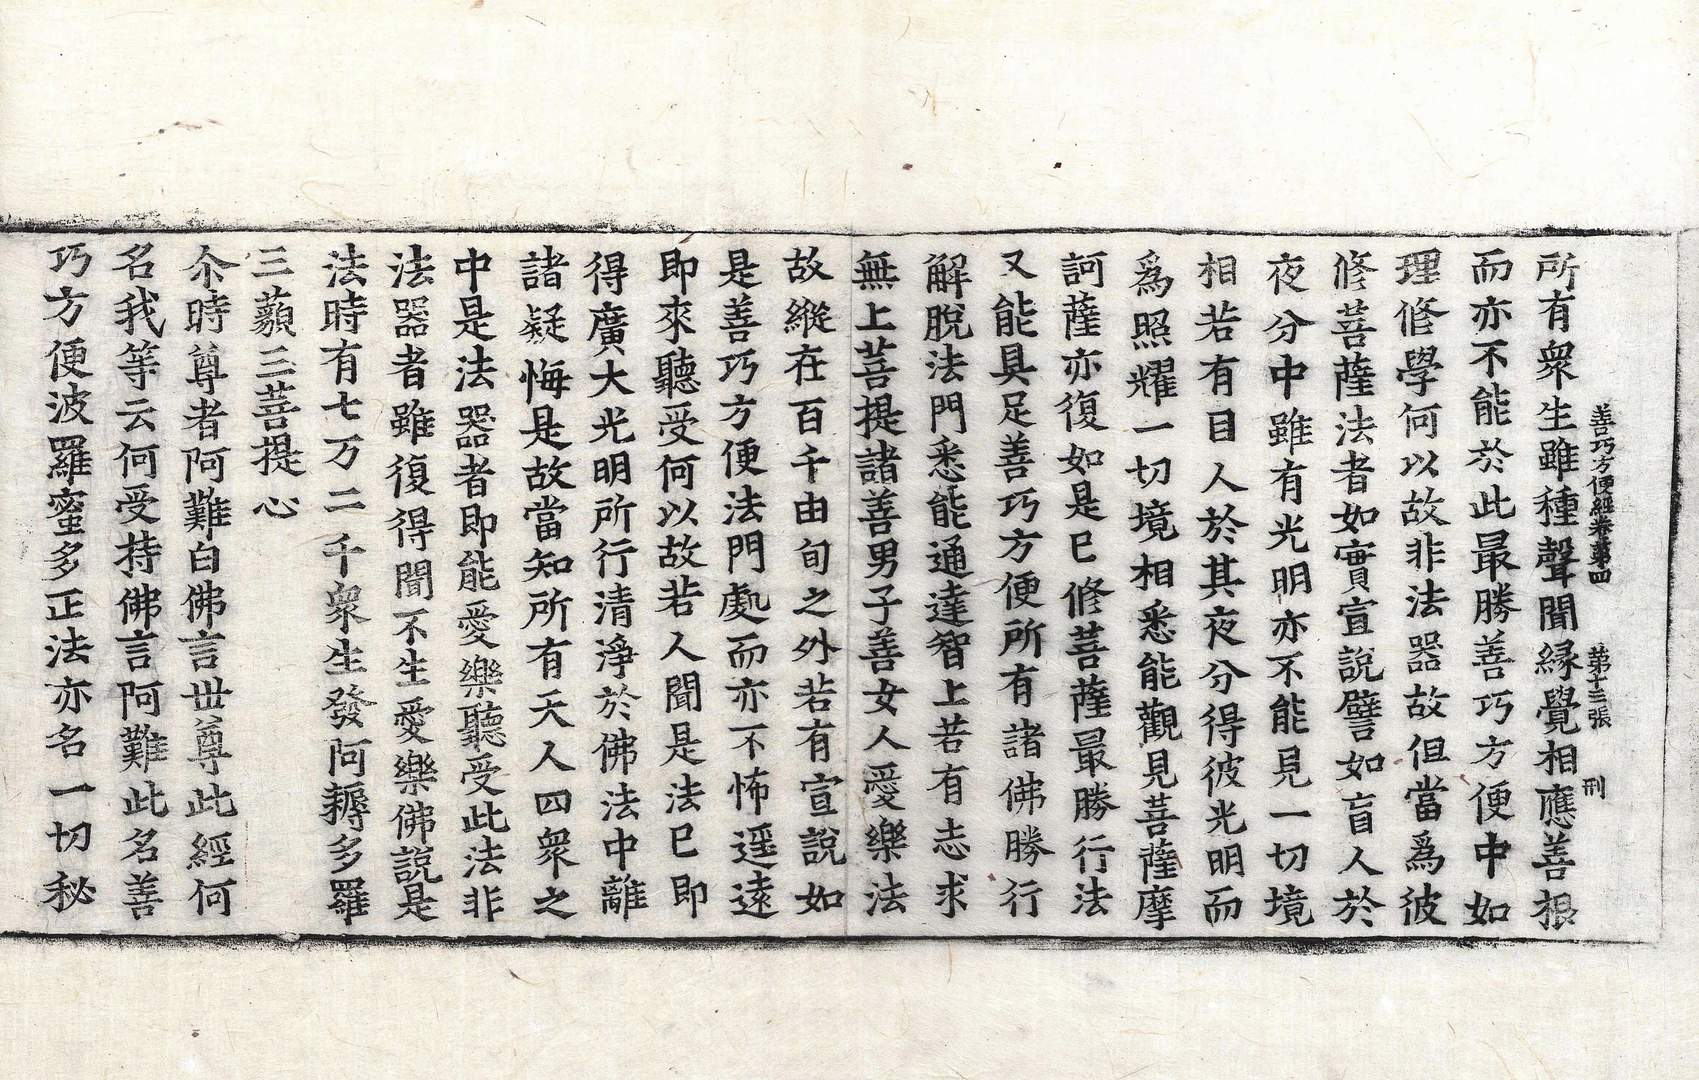 善巧方便經卷第四　第十三張　刑
所有衆生雖種聲聞緣覺相應善根
而亦不能於此最勝善巧方便中如
理修學何以故非法器故但當爲彼
修菩薩法者如實宣說譬如盲人於
夜分中雖有光明亦不能見一切境
相若有目人於其夜分得彼光明而
爲照耀一切境相悉能觀見菩薩摩
訶薩亦復如是已修菩薩最勝行法
又能具足善巧方便所有諸佛勝行
解脫法門悉能通達智上若有志求
無上菩提諸善男子善女人愛樂法
故縱在百千由旬之外若有宣說如
是善巧方便法門處而亦不怖遥遠
即來聽受何以故若人聞是法已即
得廣大光明所行清淨於佛法中離
諸疑悔是故當知所有天人四衆之
中是法器者即能愛樂聽受此法非
法器者雖復得聞不生愛樂佛說是
法時有七万二千衆生發阿耨多羅
三藐三菩提心
尒時尊者阿難白佛言世尊此經何
名我等云何受持佛言阿難此名善
巧方便波羅蜜多正法亦名一切秘